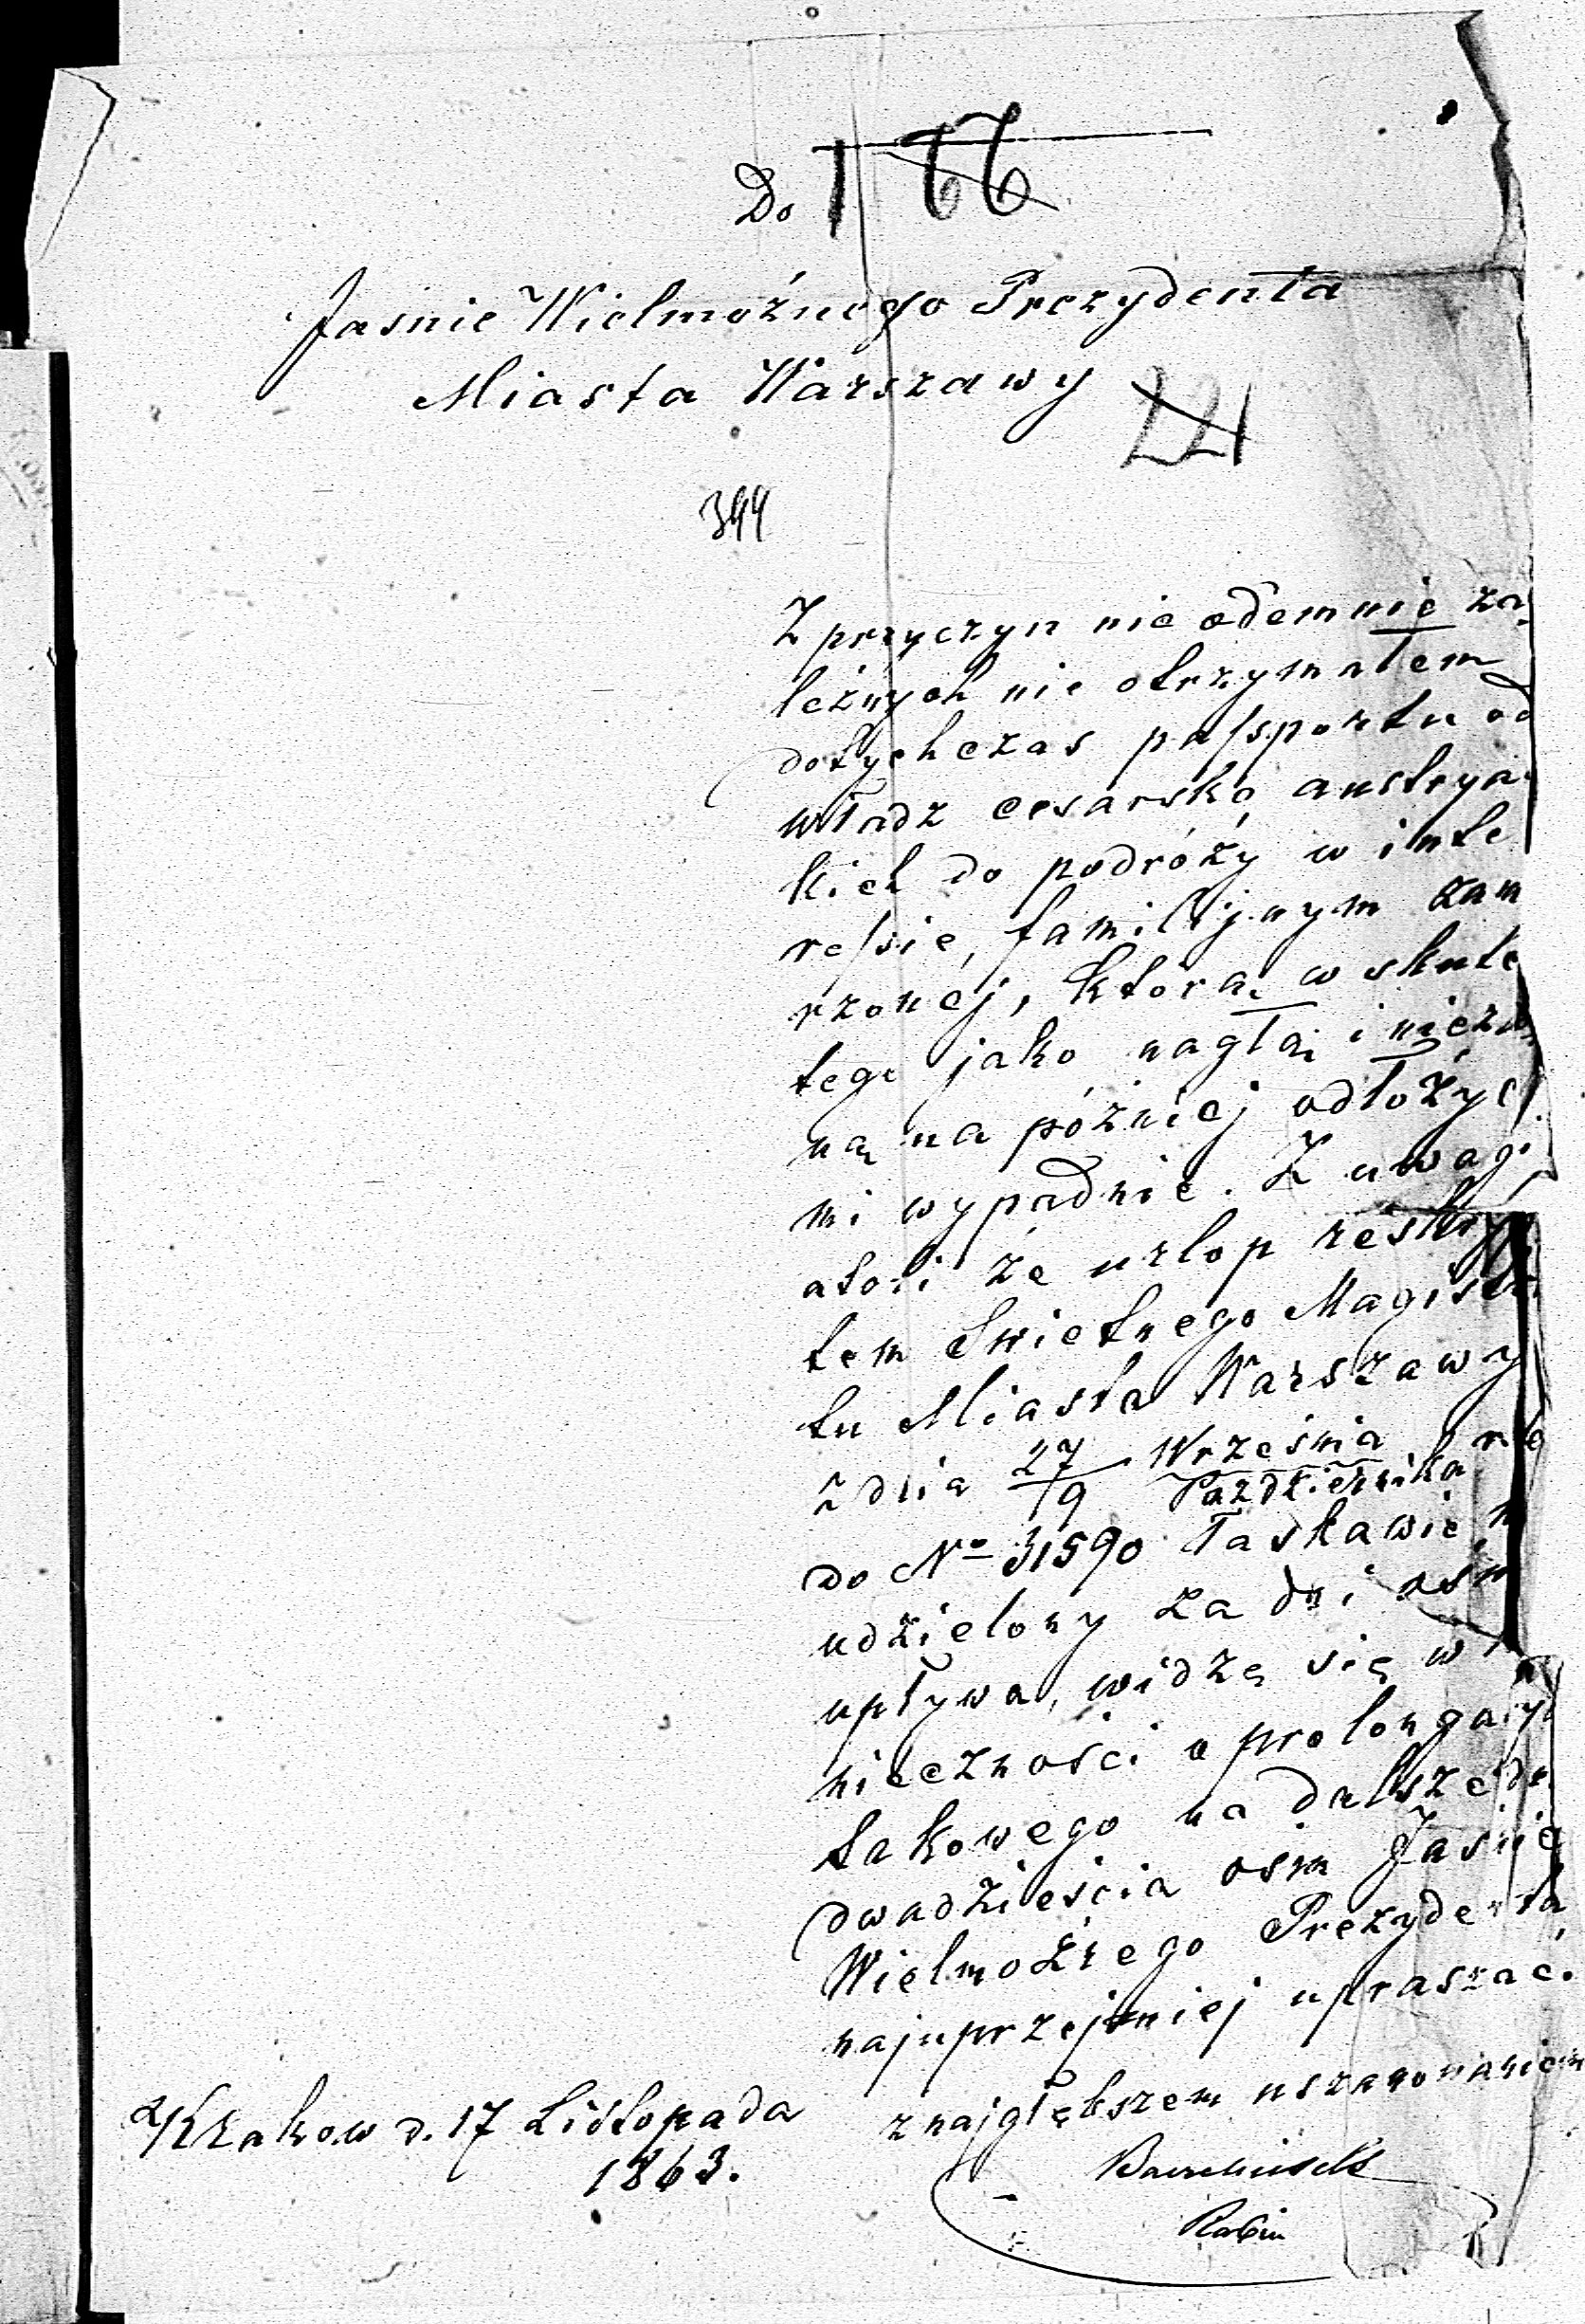 166
Do
Jasnie Wielmożnego Prezydenta
Miasta Warszawy
221
344
Z przyczyn nie odemnie za
leżnych nie otrzymałem
dotychczas passportu od
władz cesarsko austrya
kich do podróży w inte
ressie familijnym zam
rzonéj, którą w skute
tego jako nagłą i niezw
ną na późniéj odłożyć
mi wypadnie. Z uwagi
atoli że urlop reskryp
tem Swietnego Magistr
tu Miasta Warszawy
z dnia 27/9 Września/Października r
do No 31590 łaskawie
udzielony za dni osm
upływa, widzę się w
nieczności o prolongacyą
takowego na dalsze dn
dwadzieścia ośm Jaśnie
Wielmożnego Prezydenta
najuprzejmiej upraszać.
z najgłębszem uszanowaniem
Krakow d. 17 Listopada
1863.
Rabin